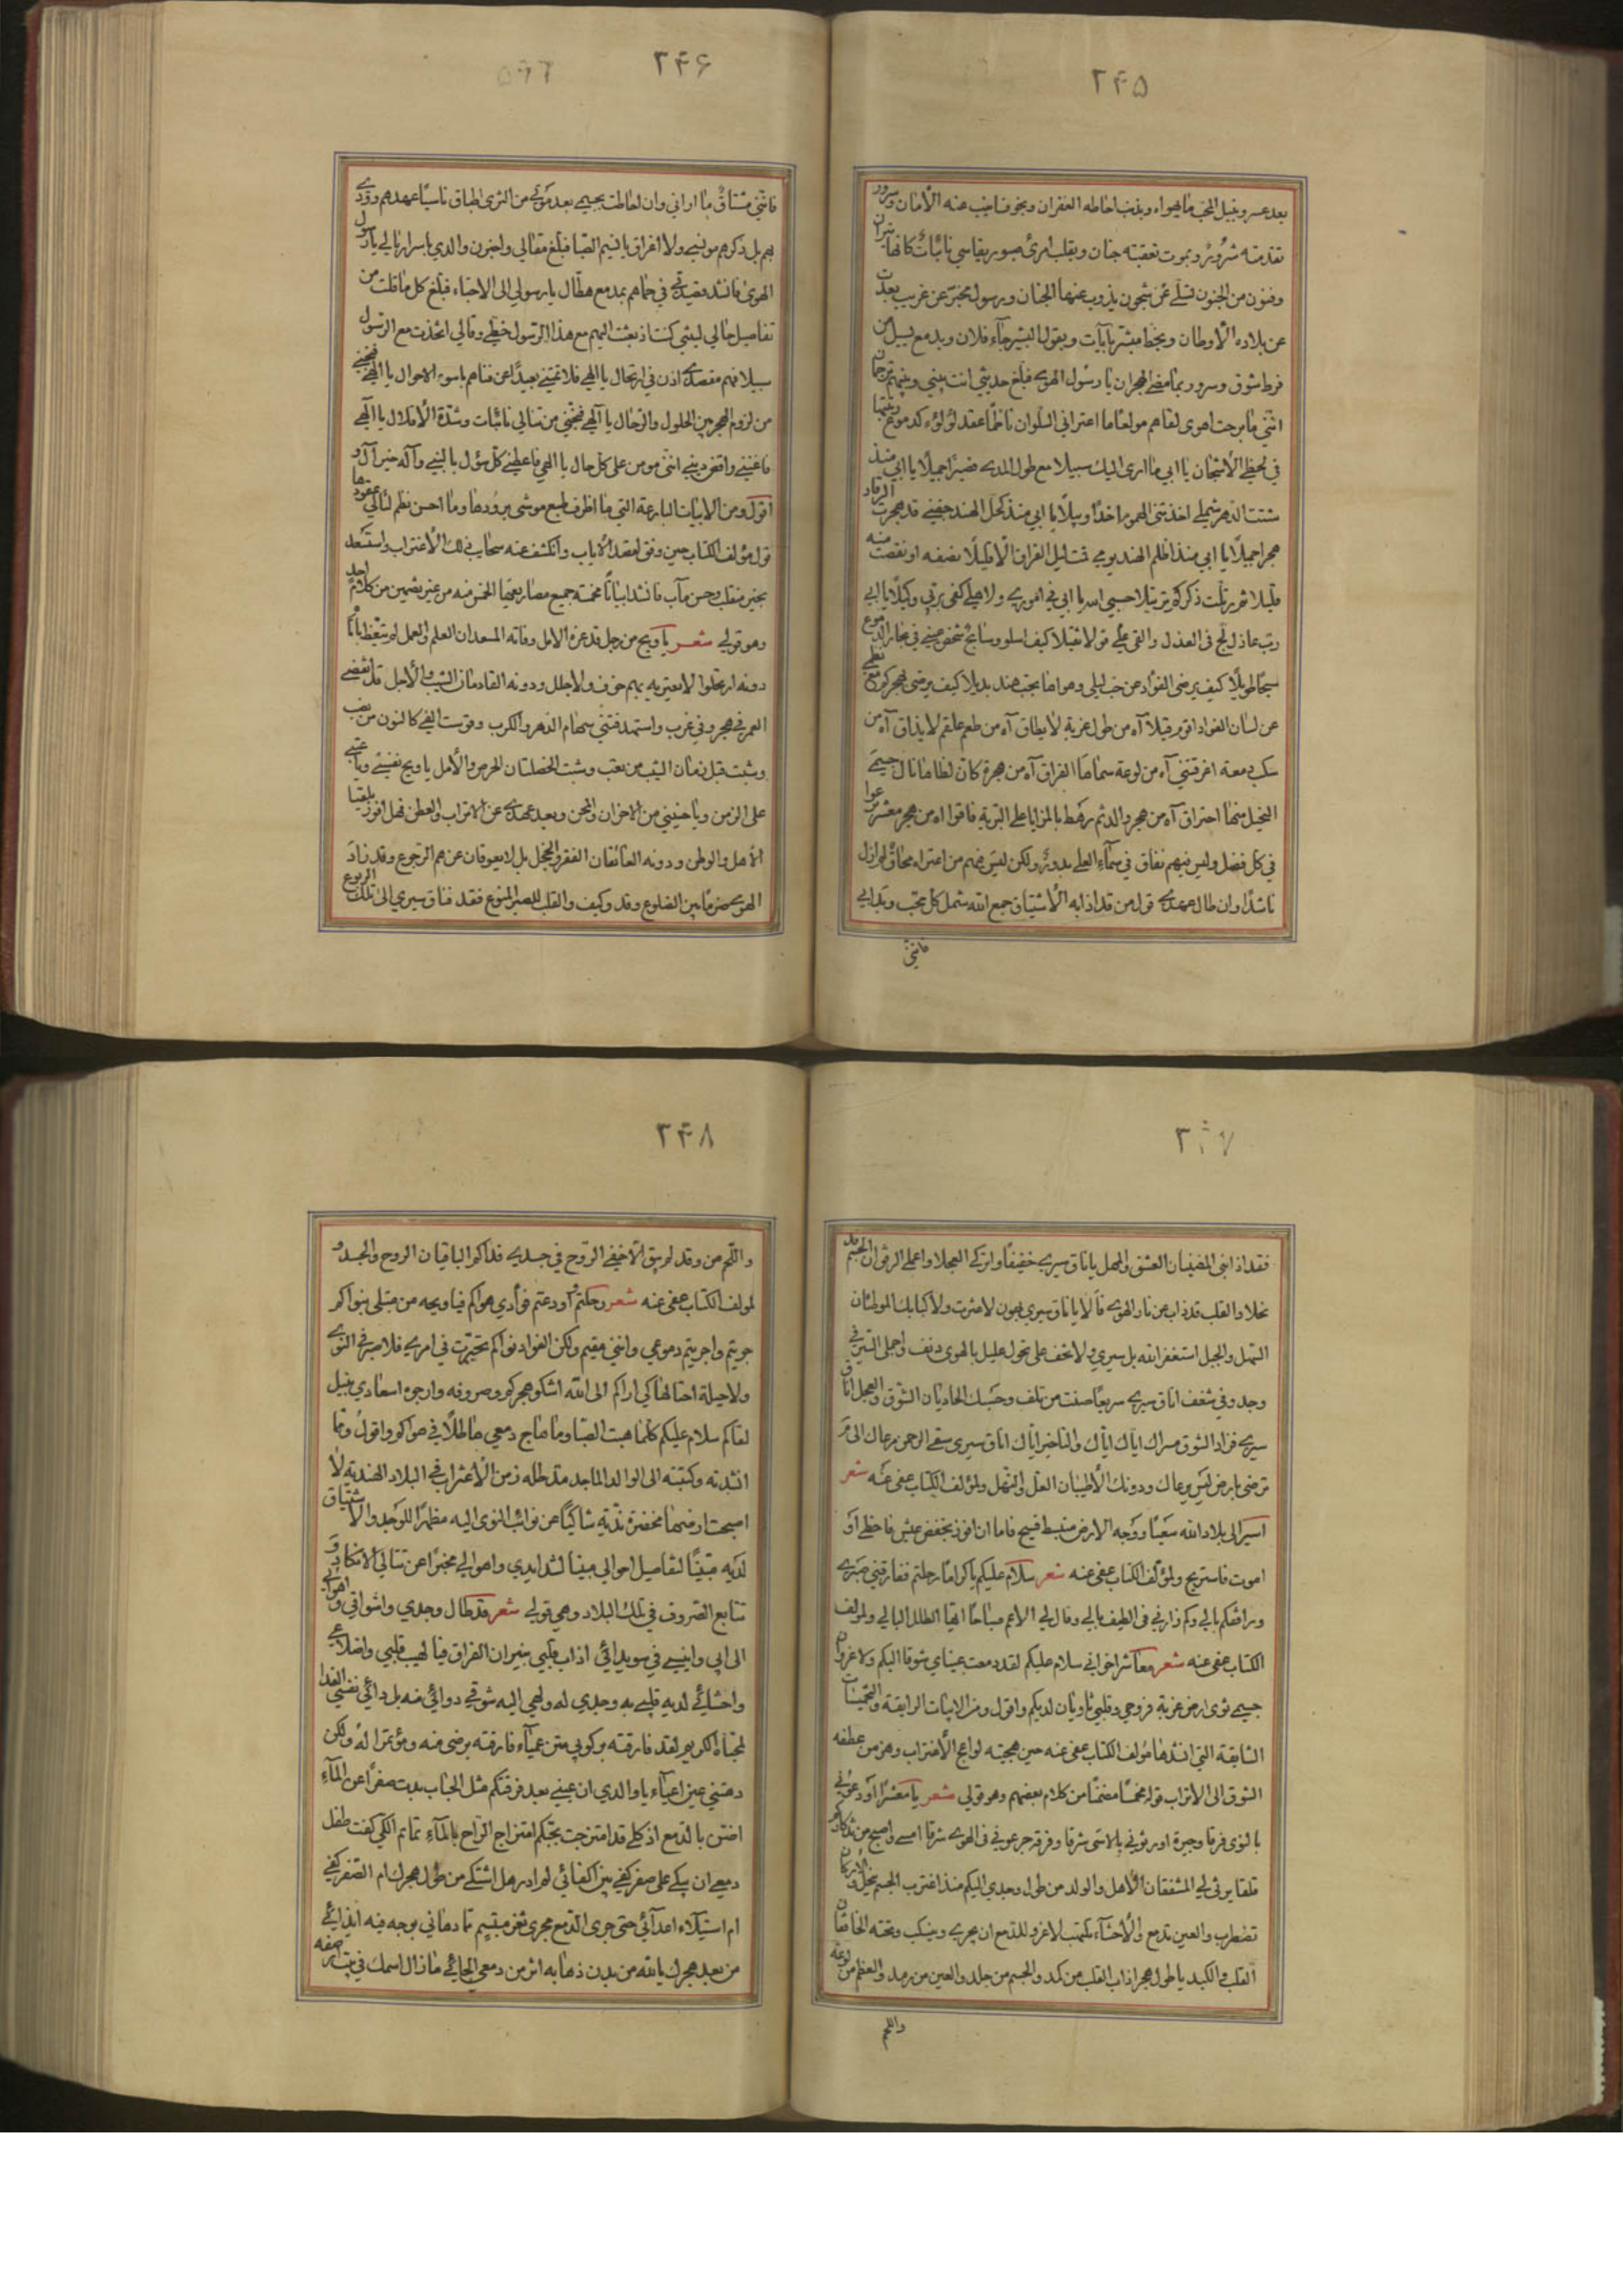 ۲۴۵
بعد عسر وبنيل المحب ما يهواه وبذنب احاطه الغفران وبخوف انيب عنه الأمان وسرور
تقدمته شرور وبموت تعقبته جنان وبقلب امرئ صبور يقاسي نائبات كانها نيران
وفنون من الجنون تسلي عن شجون يذوب عنها الجنان ورسول مخبر عن غريب بعدت
عن بلاده الأوطان وبخط مبشر بآيات وبقول البشير جاء فلان وبدمع يسيل من
فرط شوق وسرور بما مضى الهجران يا رسول الهوى فبلغ حديثي انت بيني وبينهم ترجمان
انني ما برحت اهوى لقاهم مولعا ما اعتراني السلوان ناظما عقد لؤلؤ كدموع
في لحظي الأشجان يا ابي ما ارى اليك سبيلا مع طول المدى فصبرا جميلا يا ابي منذ
شتت الدهر شملي اخذتني الهموم اخذا وبيلا يا ابي منذ كحل الهند جفني قد هجرت الرقاد
هجرا جميلا يا ابي منذ اظلم الهند يومي قمت ليل الفراق الا قليلا نصفه او نقصت منه
قليلا ثم رتلت ذكركم ترتيلا حسبي الله يا ابي في اموري ولاهلي كفى بربي وكيلا يا ابي
رب عاذل لج في العذل والقى علي قولا ثقيلا كيف اسلو وسابح شخص عيني في بحار الدموع
سبحا طويلا كيف يرضى الفؤاد عن حب ليلى وهواها بحب هند بديلا كيف يرضى فهجركم مع نظمي
عن لسان الفؤاد اقوم قيلا آه من طول غربة لا يطاق آه من طعم علقم لا يذاق آه من
سكب دمعة اغرقتني آه من لوعة سماها الفراق آه من هجرة كان لظاها نال جسمي
النحيل منها احتراق آه من هجر والد ثم رهط بالمزايا على البرية فاقوا آه من هجر معشر برعوا
في كل فضل وليس فيهم نفاق في سماء العلى بدور ولكن ليس فيهم من اعتراه محاق لم ازل
ناشدا وان طال عهدي قول من قد اذابه الأشتياق جمع الله شمل كل محب وبدا بي
فانني
۲۴۶
فانني مشتاق ما اراني وان لعالمت بجسمي بعد موتي من الثرى اطباق ناسيا عهدهم وودي
بهم بل ذكرهم مونسي ولا الفراق يا نسيم الصبا فبلغ مقالي ولخون والدي باسرار بالي يا رسول
الهوى فانشد قصيدتي في حماهم بمدمع هطال يا رسولي الى الاحباء فبلغ كل ما قلت من
تفاصيل حالي ليتني كنت اذ بعثت اليهم مع هذا الرسول خطي وقالي اتخذت مع الرسول
سبيلا فهم مقصدي اذن في ارتحال يا الهي فلا تمتني بعيدا عن فناهم باسوء الاحوال يا الهي فنجني
من لزوم الهجر بين الحلول والترحال يا الهي فنجني من تتالي نائبات وشدة الأقلال يا الهي
فاغنني واقض ديني انني مومن على كل حال يا الهي فاعطني كل سؤل بالنبي وآله خير آل و
اقول ومن الابيات البارعة التي ما اظرف لطبع موشى برودها وما احسن نظم لئالي عقودها
قول مؤلف الكتاب حين وفق لمقصد الاياب وانكشف عنه سحاب ذلك الأغتراب واستسعد
بخير منقلب وحسن مآب فانشد ابياتا مخمسة جميع مصاريعها الخمس منه من غير تضمين من كلام احد
وهو قولي شعر يا ويح من رجل قد غره الامل وفاته المسعدان العلم والعمل لم يتعظ باناس
دونه ارتحلوا لا يعتريه بهم خوف ولا جلل ودونه القادمان الشيب والأجل قد انقضى
العمر في هجر وفي غرب واستهدفتني سهام الدهر والكرب وقوست الفي كالنون من نصب
وشبت قبل زمان الشيب من تعب وشبت الخصلتان الحرص والأمل يا ويح نفسي ويا عتبي
على الزمن ويا حنيني من الاحزان والمحن وبعد عهدي عن الاتراب والعطن فهل افوز بلقيا
الأهل والوطن ودونه العائقان الفقر والخجل بل لا يعوقان عن هم الرجوع وقد زاد
الهوى ضرما بين الضلوع وقد وكيف والقلب للصبر المنوع فقد فناق سيري الى تلك الربوع
۲۴۷
فقد اذابني المضنيان العشق والمهل يا ناق سيري خفيفا واتركي العجلا واعملي الرفق ان الجسم قد
نحلا والقلب قد ذاب من نار الهوى فآلا يا ناق سيري بهون لا عثرت ولا كبا بك الموطئان
السهل والجبل استغفر الله بل سيري ولا تخف على نحول عليل بالهوى دنف واجملي السير في
وجد وفي شغف اناق سيري سريعا صنت من تلف وحسبك الحاديان الشوق والعجل اناق
سيري فزاد الشوق مسراك اياك اياك والتاخير اياك اناق سيري سقى الرحمن مرعاك الى م
ترضى بارض ليس مرعاك ودونك الأطيبان العل والنهل ولمؤلف الكتاب عفى عنه شعر
اسير الى بلاد الله سعيا ووجه الارض منبسط فسيح فاما ان افوز بخفض عيش فاحظى او
اموت فاستريح ولمؤلف الكتاب عفى عنه شعر سلام عليكم يا كراما رحلتم ففارقني صبري
ورافقكم بالي وكم زارني في الطيف بالي وقال لي الا عم صباحا ايها الطلل البالي ولمؤلف
الكتاب عفى عنه شعر معاشر اخواني سلام عليكم لقد دمعت عيناي شوقا اليكم ولا غرو ان
جسمي ثوى ارض غربة فروحي وقلبي ثاويان لديكم واقول ومن الابيات الرايقة والتخميسات
الشايقة التي انشدها مؤلف الكتاب عفى عنه حين هيجته لواعج الأغتراب وهز من عطفه
الشوق الى الاتراب قوله مخمسا مضمنا من كلام بعضهم وهو قولي شعر يا معشرا اودعوني
بالنوى فرقا وجيرة اورثوني بالاسى شرقا وفرقة جرعوني في الهوى شرقا امسي واصبح من تذكاركم
قلقا يرثي لي المشفقان الأهل والولد من طول وجدي اليكم منذ اغترب الجسم نحيل والأركان
تضطرب والعين تدمع والأحشاء تلتهب لا غرو للدمع ان يجري وينسكب وتحته الخافقان
القلب والكبد يا طول هجر اذاب القلب من كمد والجسم من جلد والعين من رمد والعظم من لوعة
واللحم
۲۴۸
واللحم من وقد لم يبق الا خفي الروح في جسدي فداكم الباقيان الروح والجسد و
لمولف الكتاب عفى عنه شعر رحلتم واودعتم فؤادي هواكم فيا ويحه من مبتلى بنواكم
جريتم واجريتم دموعي وانني مقيم ولكن الفؤاد نواكم تحيرت في امري فلا صبر في النوى
ولا حيلة احتالها كي اراكم الى الله اشكو هجركم وصروفه وارجوه اسعادي بنيل
لقاكم سلام عليكم كلما هبت الصبا وما هاج دمعي هاطلا في هواكم واقول ومما
انشدته وكتبته الى الوالد الماجد مد ظله زمن الأغتراب في البلاد الهندية لا
اصبحت ارضها مخضرة ندية شاكيا عن نوائب النوى اليه مظهرا للوجد والاشتياق
لديه مبينا لتفاصيل احوالي مبينا لشدايدي واهوالي مخبرا عن تتالي الانكاد و
تتابع الصروف في تلك البلاد وهي قولي شعر قد طال وجدي واشواقي واهوائي
الى ابي وانيسي في سويدائي اذاب قلبي بنيران الفراق فيا لهيب قلبي واضلاعي
واحشائي لديه قلبي به وجدي له ولهي اليه شوقي دوائي منه بل دائي نفسي الفدا
لمجتباه الكريم لقد فارقته بركوبي متن عمياء فارقته برضى منه ومؤتمرا له ولكن
دهتني عين اعياء يا والدي ان عيني بعد فرقتكم مثل الحباب بدت صفرا عن الماء
اضن بالدمع اذ كلي قد امتزجت بحبكم امتزاج الراح بالماء تمايم الكي كفت طفل
دمعي ان يبكي على صفر كفي بين اكفائي لم ادر هل اشتكي من طول هجرك ام الصفر كفي
ام استيلاء اعدائي حتى جرى الدمع مجرى ثغر مبتسم تا دهاني بوجه فيه ايذائي
من بعد هجرك يا لله من بدن ذهابه اثر من دمعي الجائي ما زال اسمك في بيت اصفه